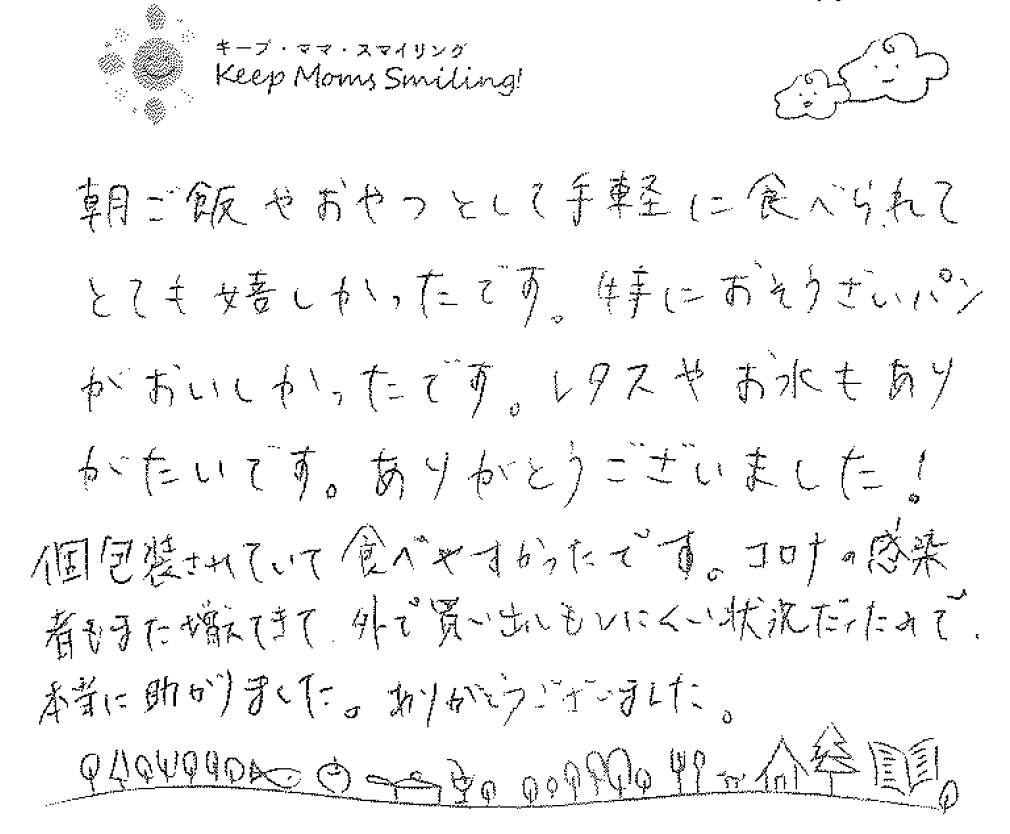 キープ・ママ・スマイリング
Keep Moms Smiling!
朝ご飯やおやつとして手軽に食べられて
とても嬉しかったです。特におそうざいパン
がおいしかったです。レタスやお水もあり
がたいです。ありがとうございました!
個包装されていて食べやすかったです。コロナの感染
者もまた増えてきて、外で買い出しもしにくい状況だったので、
本当に助かりました。ありがとうございました。